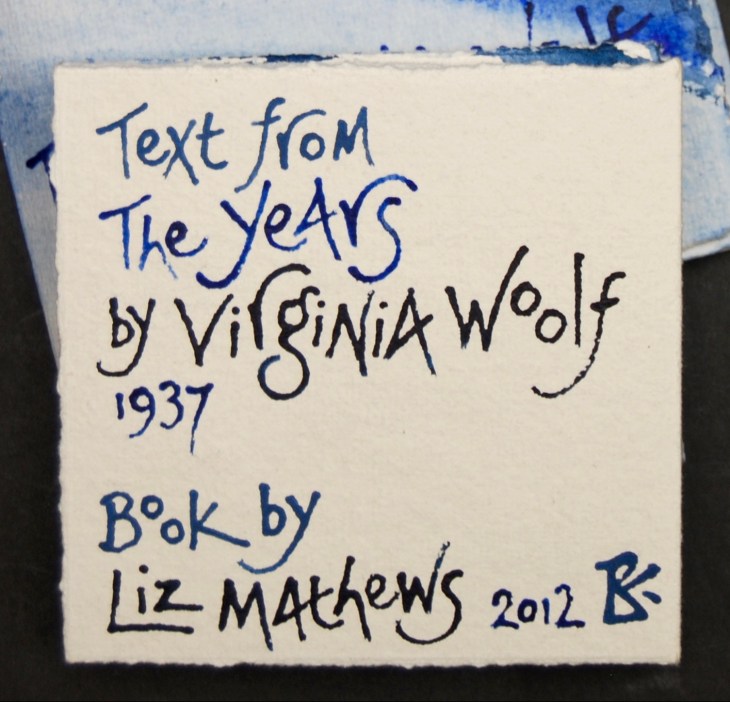 Text from
The Years
by Virginia Woolf
1937
Book by
Liz Mathews 2012